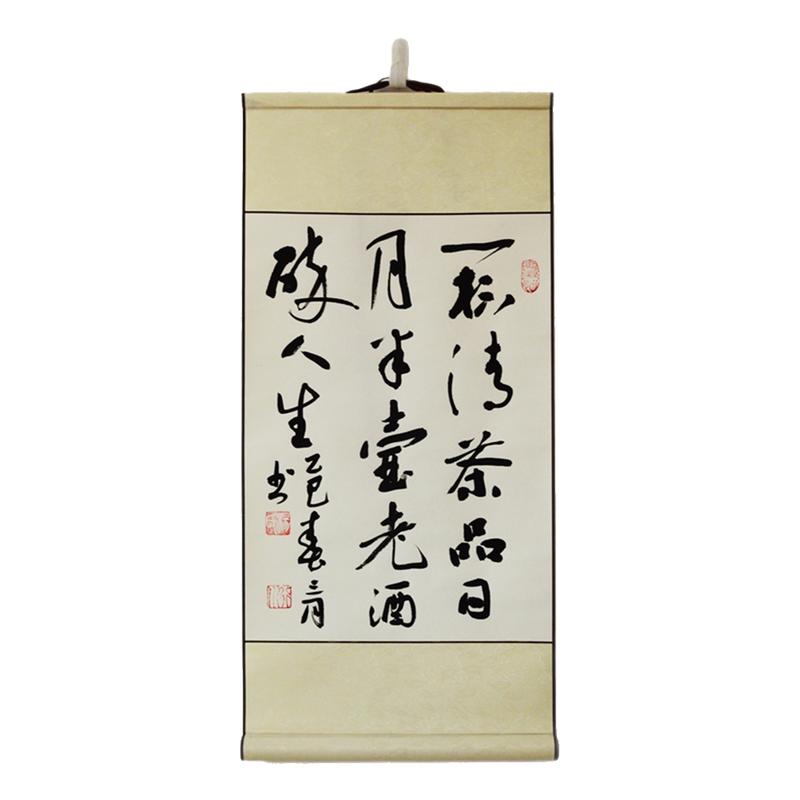 一杯清茶品日
月半壺老酒
醉人生
乙巳春三月
书